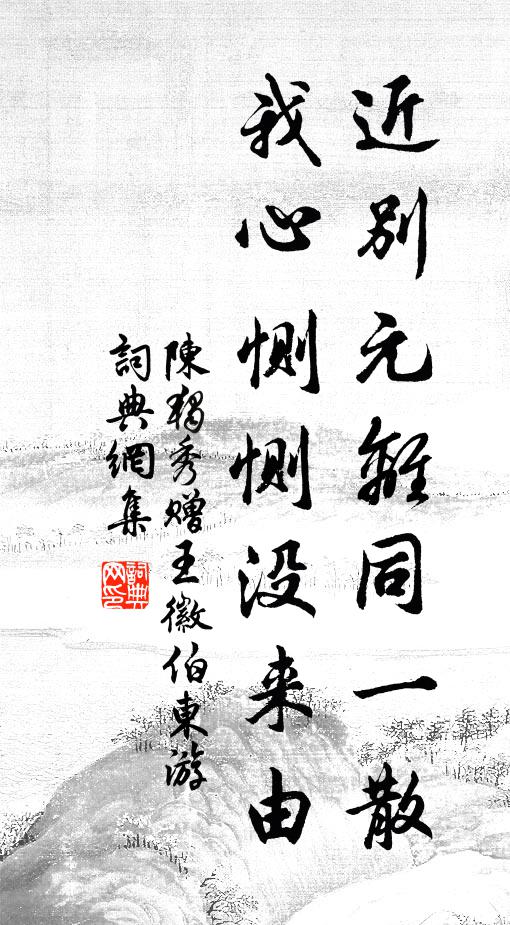 近别元離同一散
我心惻惻没来由
陳獨秀赠王徽伯東游
詞典網集
詞典网印